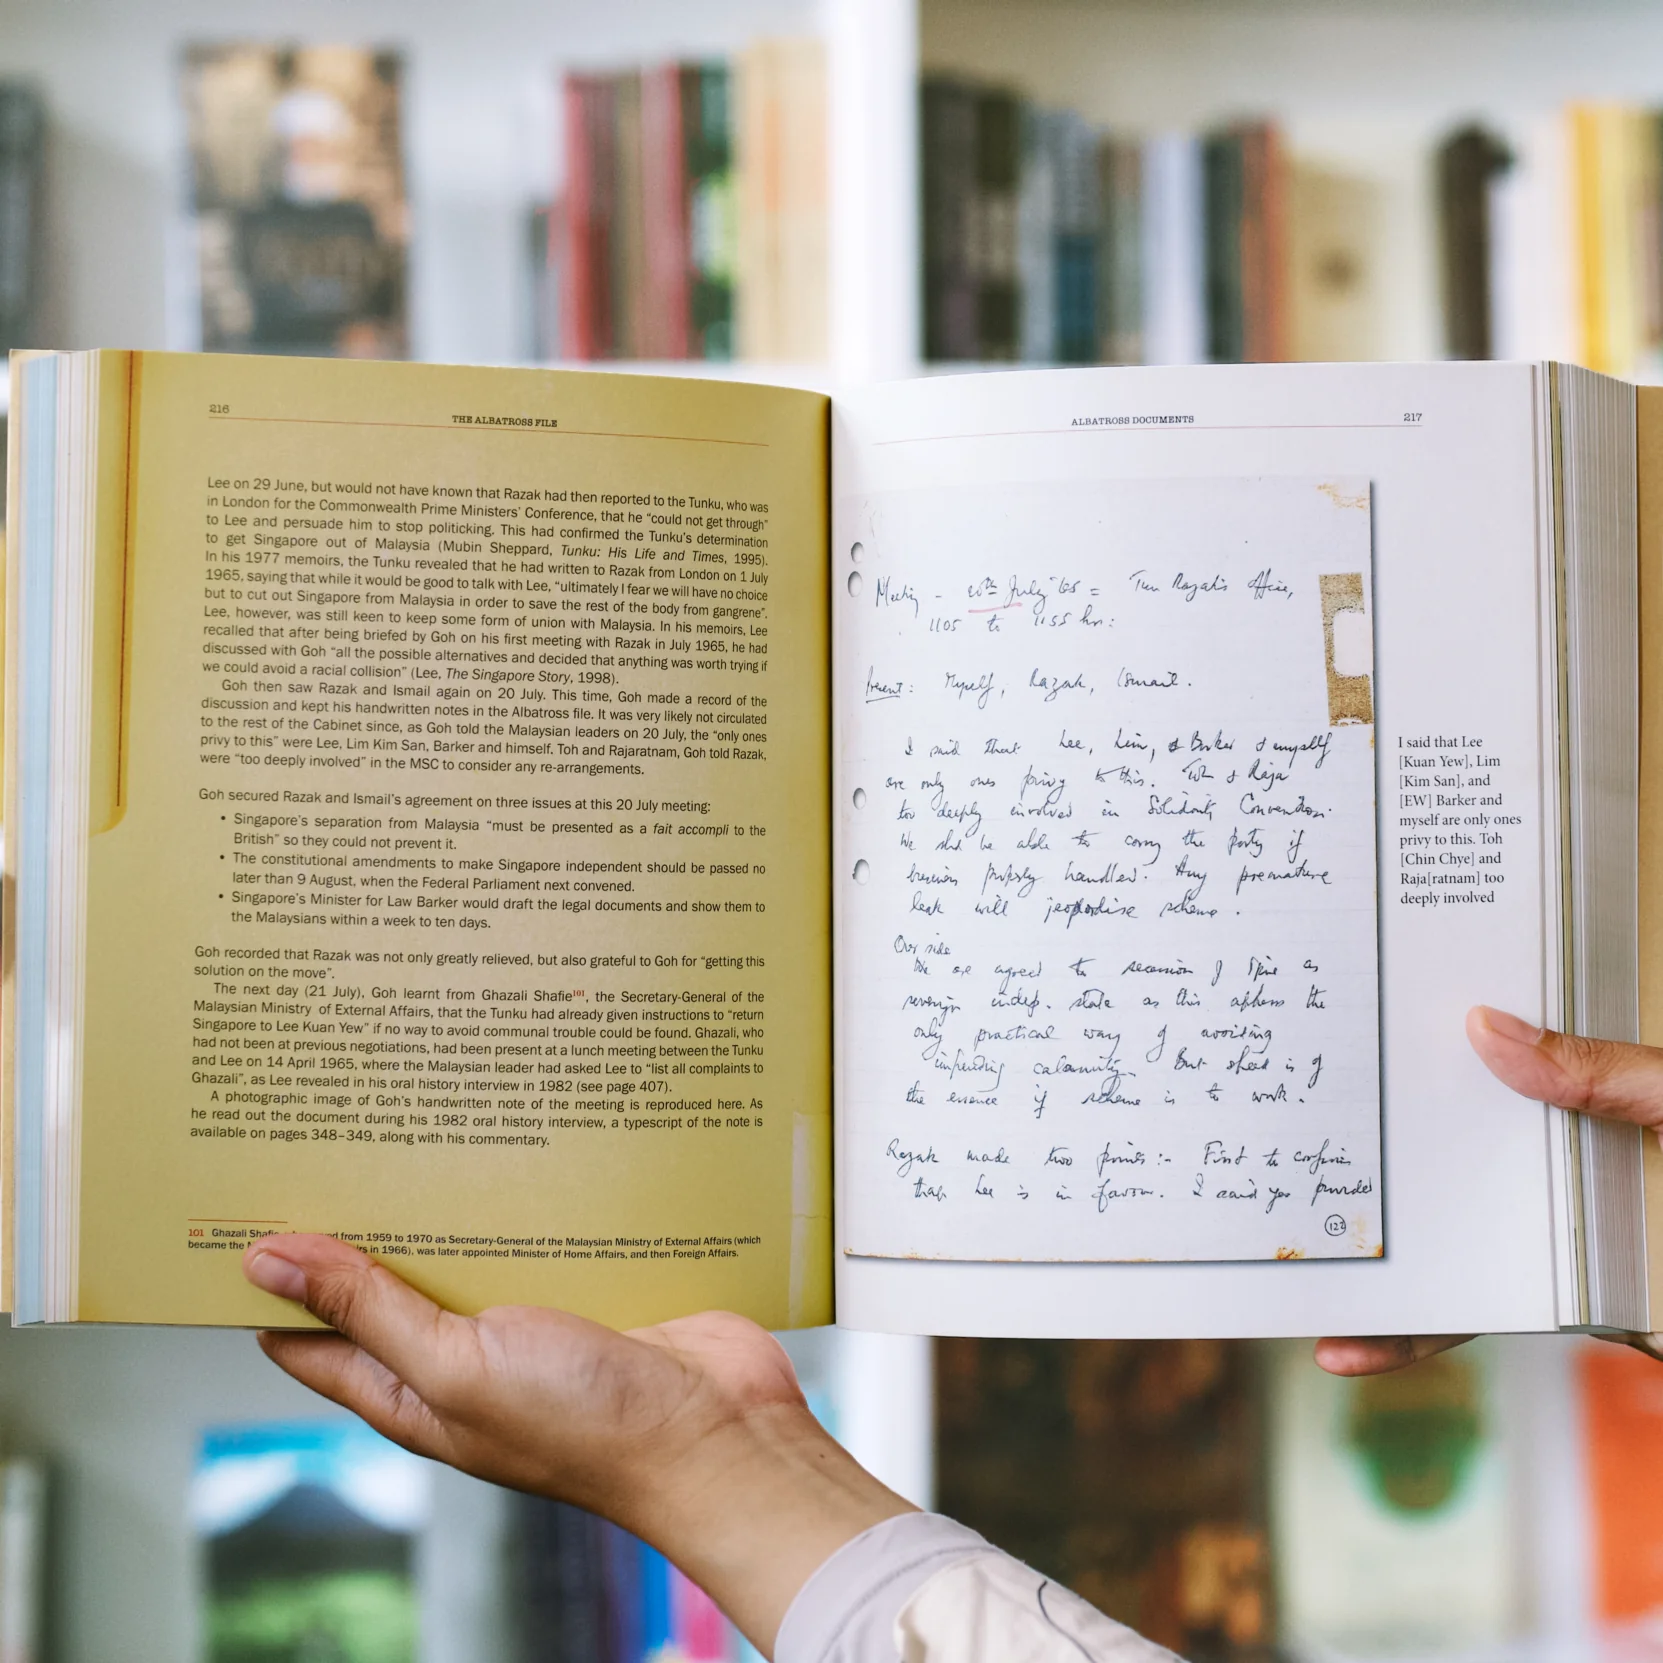 216
THE ALBATROSS FILE
Lee on 29 June, but would not have known that Razak had then reported to the Tunku, who was
in London for the Commonwealth Prime Ministers' Conference, that he "could not get through"
to Lee and persuade him to stop politicking. This had confirmed the Tunku's determination
to get Singapore out of Malaysia (Mubin Sheppard, Tunku: His Life and Times, 1995).
In his 1977 memoirs, the Tunku revealed that he had written to Razak from London on 1 July
1965, saying that while it would be good to talk with Lee, "ultimately I fear we will have no choice
but to cut out Singapore from Malaysia in order to save the rest of the body from gangrene".
Lee, however, was still keen to keep some form of union with Malaysia. In his memoirs, Lee
recalled that after being briefed by Goh on his first meeting with Razak in July 1965, he had
discussed with Goh "all the possible alternatives and decided that anything was worth trying if
we could avoid a racial collision" (Lee, The Singapore Story, 1998).
Goh then saw Razak and Ismail again on 20 July. This time, Goh made a record of the
discussion and kept his handwritten notes in the Albatross file. It was very likely not circulated
to the rest of the Cabinet since, as Goh told the Malaysian leaders on 20 July, the "only ones
privy to this" were Lee, Lim Kim San, Barker and himself. Toh and Rajaratnam, Goh told Razak,
were "too deeply involved" in the MSC to consider any re-arrangements.
Goh secured Razak and Ismail's agreement on three issues at this 20 July meeting:
• Singapore's separation from Malaysia "must be presented as a fait accompli to the
British" so they could not prevent it.
• The constitutional amendments to make Singapore independent should be passed no
later than 9 August, when the Federal Parliament next convened.
• Singapore's Minister for Law Barker would draft the legal documents and show them to
the Malaysians within a week to ten days.
Goh recorded that Razak was not only greatly relieved, but also grateful to Goh for "getting this
solution on the move".
The next day (21 July), Goh learnt from Ghazali Shafie101, the Secretary-General of the
Malaysian Ministry of External Affairs, that the Tunku had already given instructions to "return
Singapore to Lee Kuan Yew" if no way to avoid communal trouble could be found. Ghazali, who
had not been at previous negotiations, had been present at a lunch meeting between the Tunku
and Lee on 14 April 1965, where the Malaysian leader had asked Lee to "list all complaints to
Ghazali", as Lee revealed in his oral history interview in 1982 (see page 407).
A photographic image of Goh's handwritten note of the meeting is reproduced here. As
he read out the document during his 1982 oral history interview, a typescript of the note is
available on pages 348–349, along with his commentary.
101 Ghazali Shafie from 1959 to 1970 as Secretary-General of the Malaysian Ministry of External Affairs (which
became the in 1966), was later appointed Minister of Home Affairs, and then Foreign Affairs.
ALBATROSS DOCUMENTS
217
Meeting - 20th July '65 = Tun Razak's Office,
1105 to 1155 hrs:
Present: Myself, Razak, Ismail.
I said that Lee, Lim, & Barker & myself
are only ones privy to this. Toh & Raja
too deeply involved in Solidarity Convention.
We shd be able to carry the party if
business properly handled. Any premature
leak will jeopardise scheme.
Over side
We are agreed to secession of S'pore as
sovereign indep. state as this appears the
only practical way of avoiding
impending calamity. But speed is of
the essence if scheme is to work.
Razak made two points:- First to confirm
that Lee is in favour. I said yes provided
122
I said that Lee
[Kuan Yew], Lim
[Kim San], and
[EW] Barker and
myself are only ones
privy to this. Toh
[Chin Chye] and
Raja[ratnam] too
deeply involved